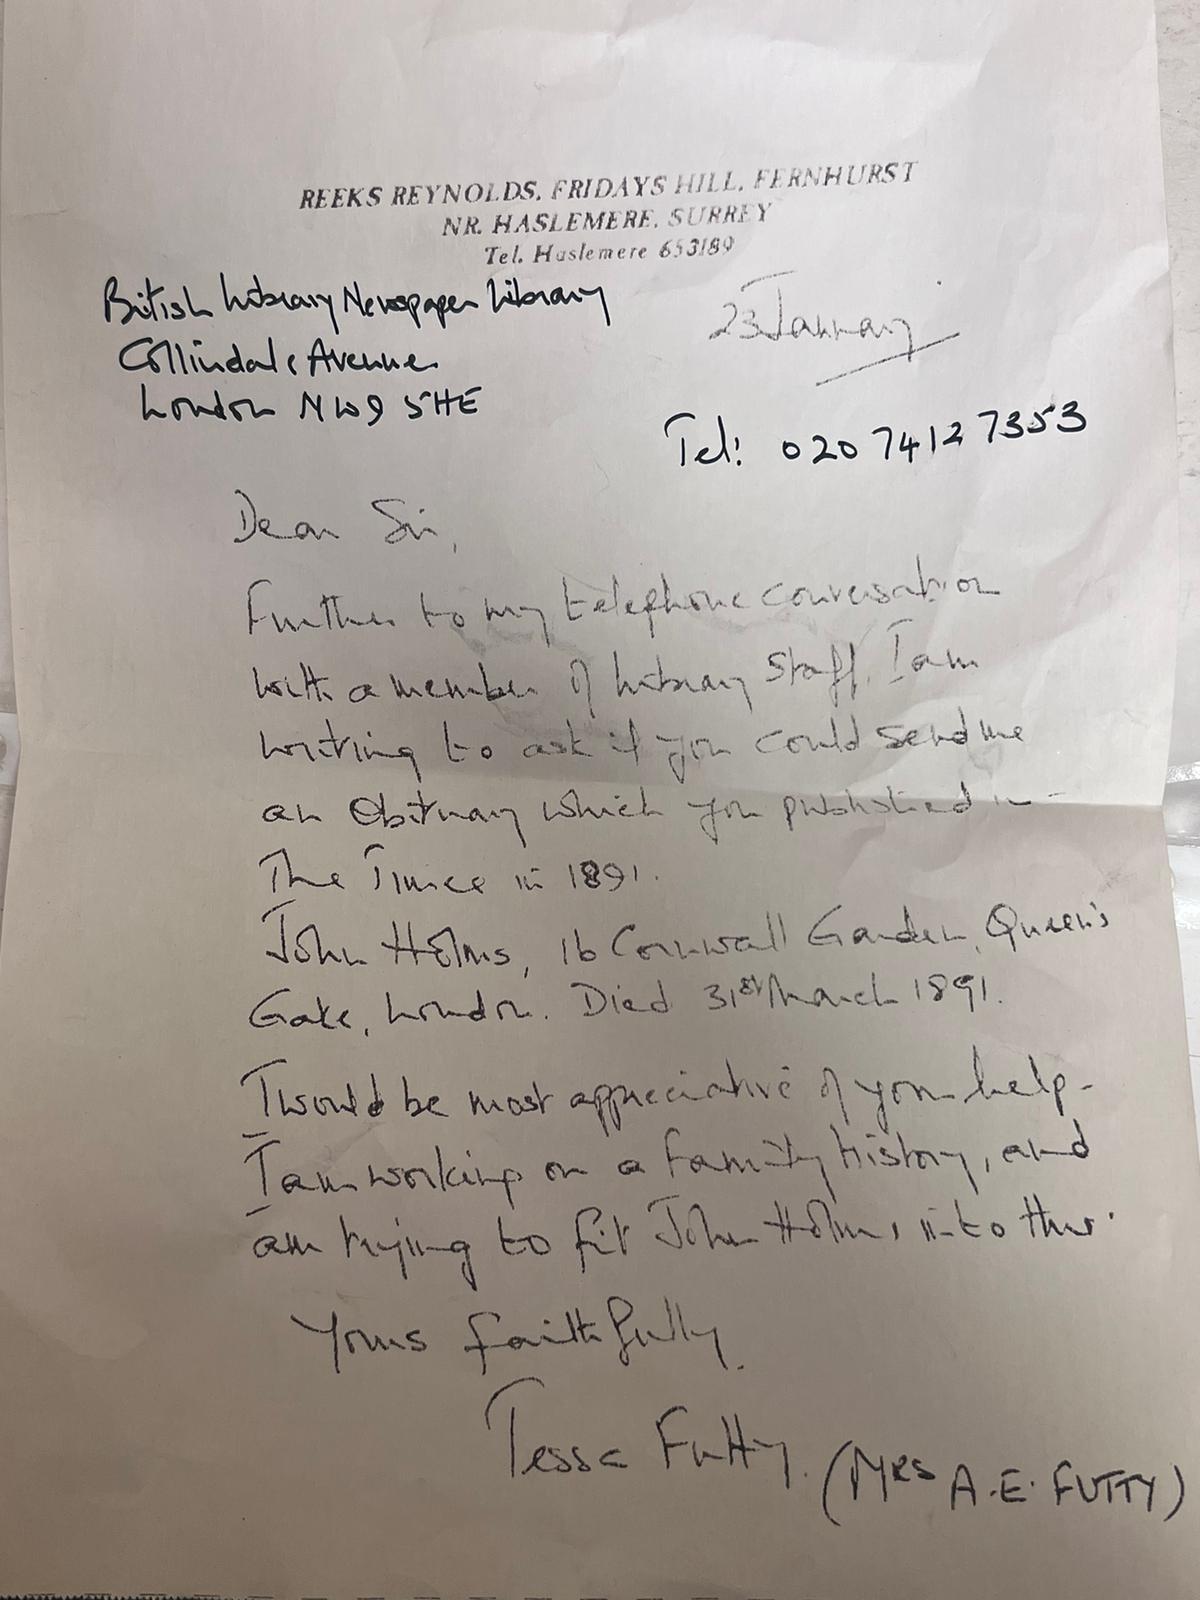 REEKS REYNOLDS, FRIDAYS HILL, FERNHURST
NR. HASLEMERE, SURREY
Tel. Haslemere 653189
British Library Newspaper Library
23 January
Collindale Avenue
London NW9 5HE
Tel: 020 7412 7353
Dear Sir,
Further to my telephone conversation
with a member of Library Staff, I am
writing to ask if you could send me
an Obituary which you published in
The Times in 1891.
John Holms, 16 Cornwall Garden, Queen's
Gate, London. Died 31st March 1891.
I would be most appreciative of your help -
I am working on a family history, and
am trying to fit John Holms into this.
Yours faithfully,
Tessa Futty. (MRS A.E. FUTTY)